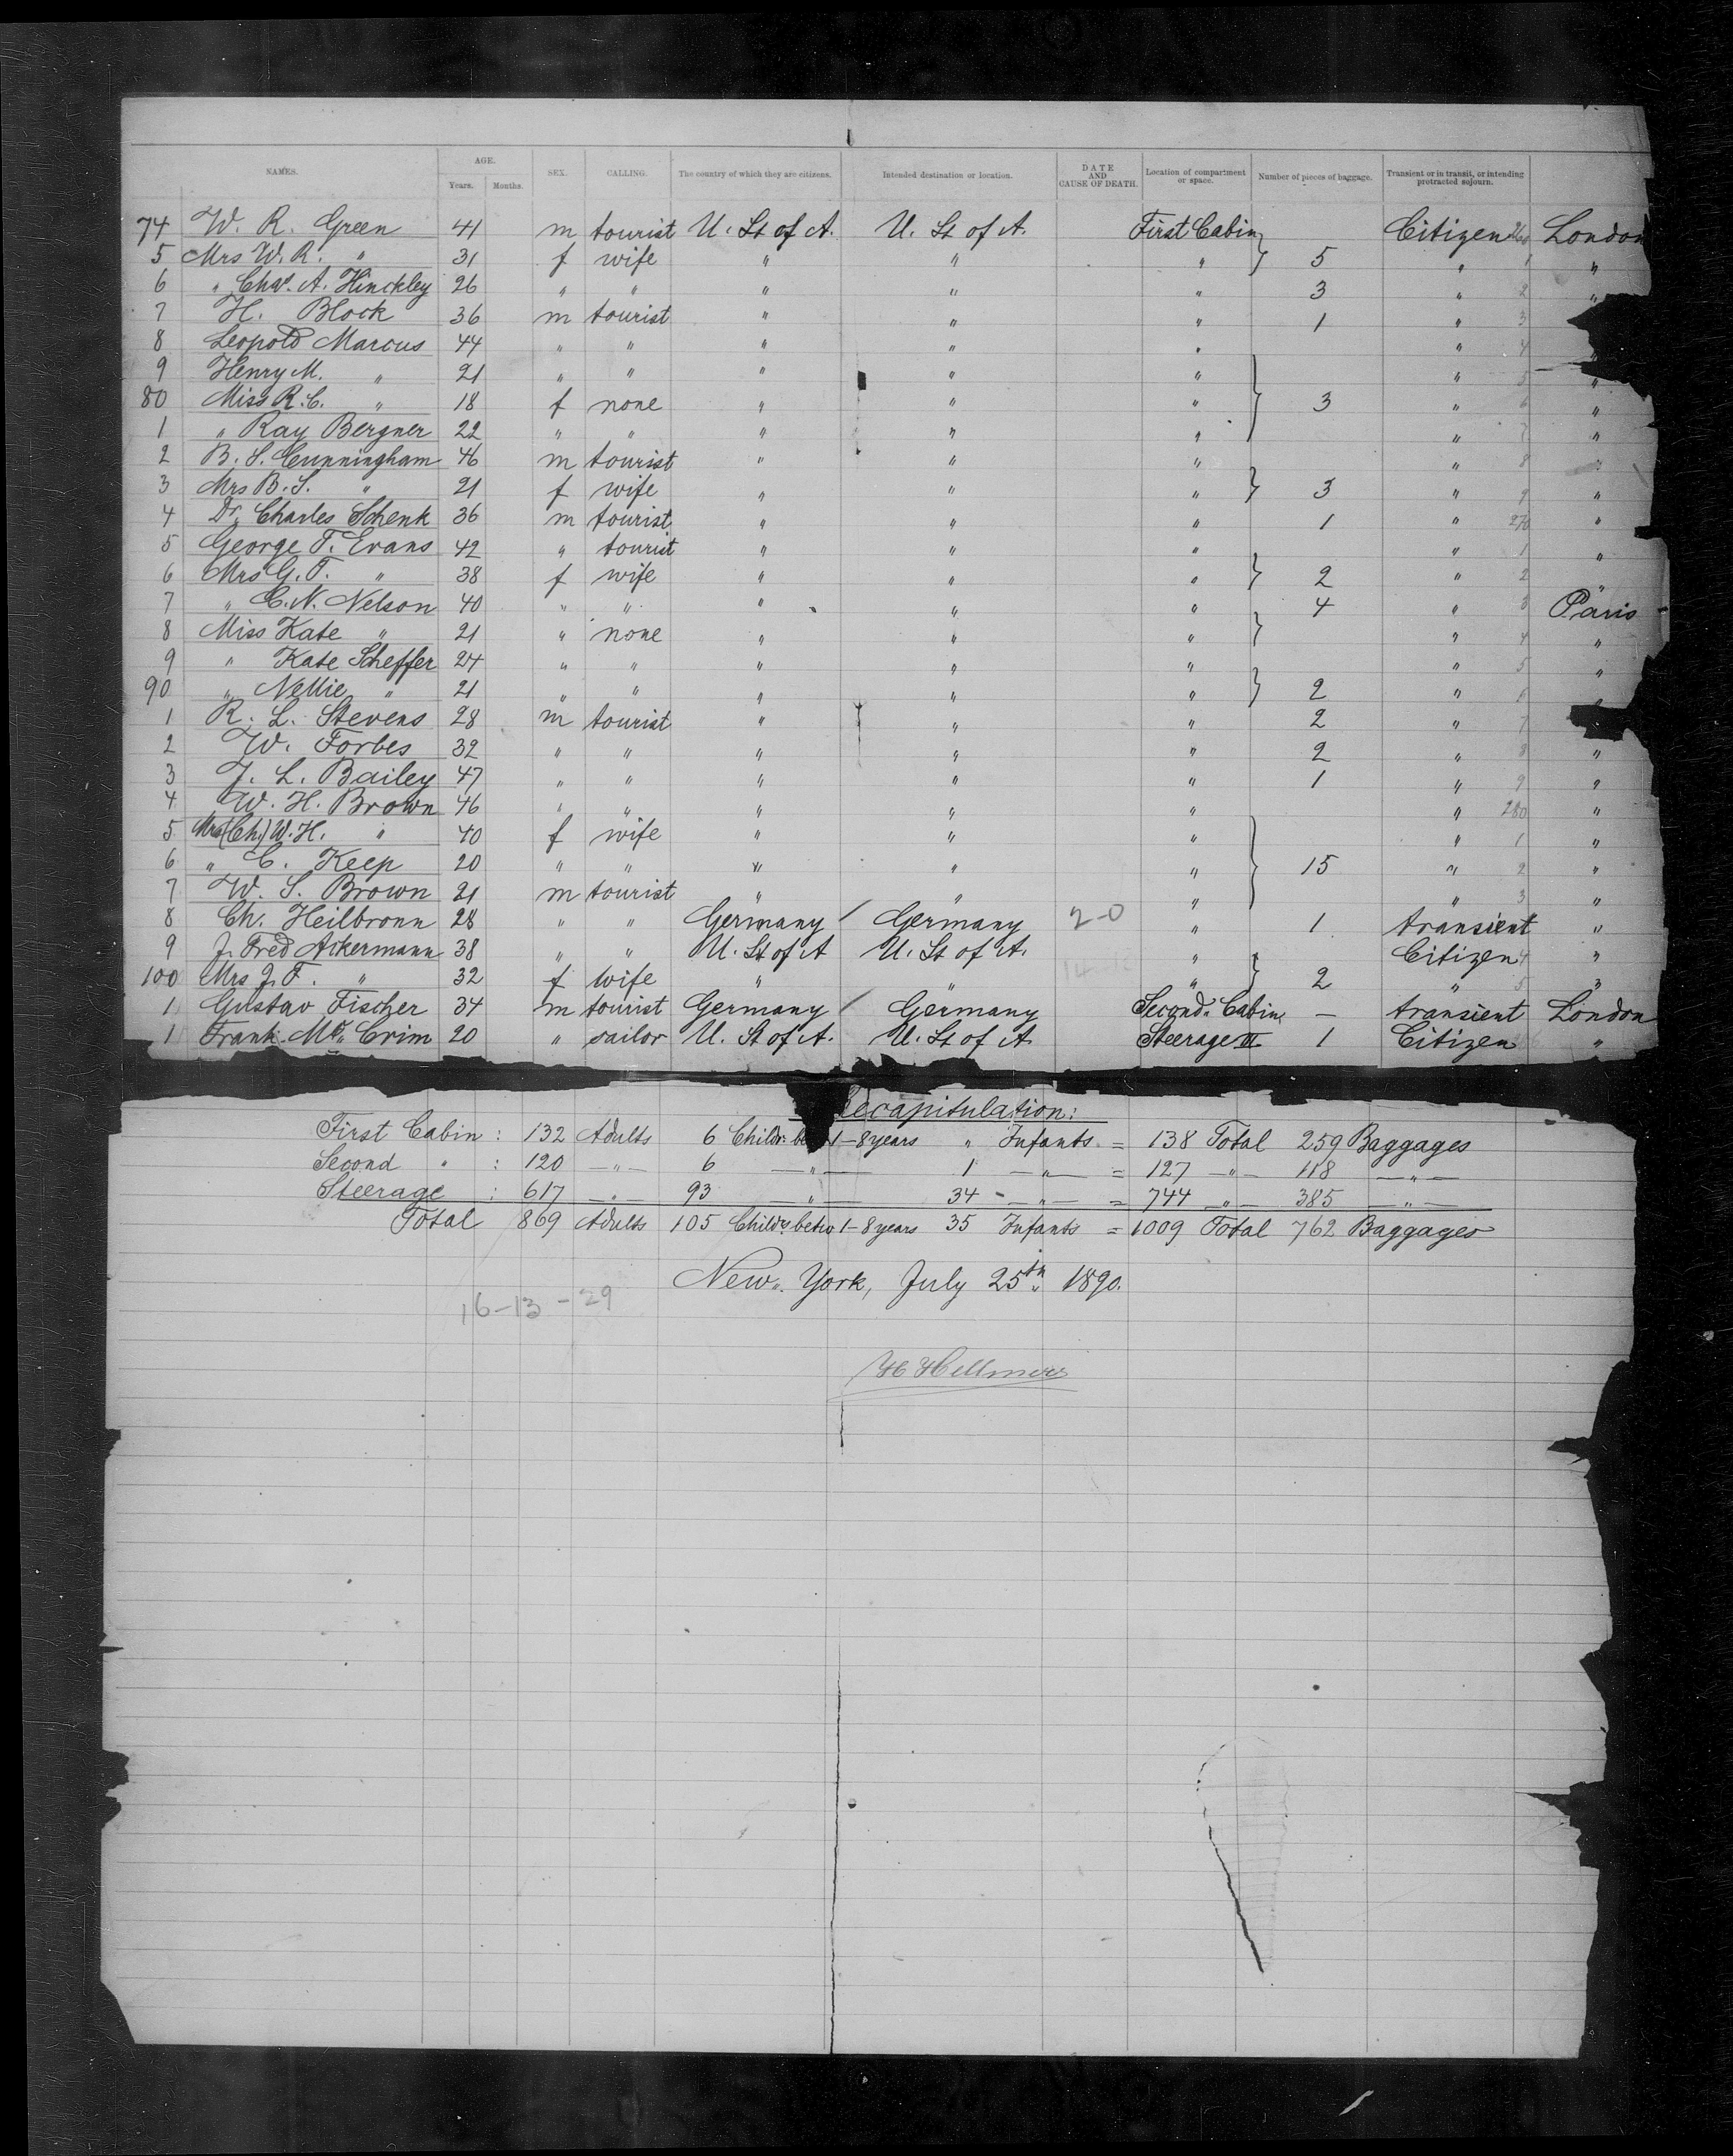 NAMES. AGE. Years. Months. SEX. CALLING. The country of which they are citizens. Intended destination or location. DATE AND CAUSE OF DEATH. Location of compartment or space. Number of pieces of baggage. Transient or in transit, or intending protracted sojourn.
74 W. R. Green 41 m tourist U. St of A. U. St of A. First Cabin Citizen 260 London
5 Mrs W. R. " 31 f wife " " " } 5 " 1 "
6 " Chas. A. Hinckley 26 " " " " " 3 " 2 "
7 H. Block 36 m tourist " " " 1 " 3
8 Leopold Marcus 44 " " " " " " 4 "
9 Henry M. " 21 " " " " " " 5 "
80 Miss R. C. " 18 f none " " " } 3 " 6 "
1 " Ray Bergner 22 " " " " " " 7 "
2 B. S. Cunningham 46 m tourist " " " " 8 "
3 Mrs B. S. " 21 f wife " " " } 3 " 9 "
4 Dr. Charles Schenk 36 m tourist " " " 1 " 270 "
5 George T. Evans 42 " tourist " " " " 1 "
6 Mrs G. T. " 38 f wife " " " } 2 " 2 "
7 " C. N. Nelson 40 " " " " " 4 " 3 Paris
8 Miss Kate " 21 " none " " " } " 4 "
9 " Kate Scheffer 24 " " " " " " 5 "
90 " Nellie " 21 " " " " " } 2 " 6
1 R. L. Stevens 28 m tourist " " " 2 " 7 "
2 W. Forbes 32 " " " " " 2 " 8 "
3 J. L. Bailey 47 " " " " " 1 " 9 "
4 W. H. Brown 46 " " " " " " 280 "
5 Mrs (Ch.) W. H. " 40 f wife " " " " 1 "
6 " C. Keep 20 " " " " " } 15 " 2 "
7 W. S. Brown 21 m tourist " " " " 3 "
8 Ch. Heilbronn 28 " " Germany / Germany 2-0 " 1 transient "
9 J. Fred Ackermann 38 " " U. St of A U. St of A. " Citizen 4 "
100 Mrs J. F. " 32 f wife " " " } 2 " 5 "
1 Gustav Fischer 34 m tourist Germany / Germany Second Cabin — transient London
1 Frank Mc. Crim 20 " sailor U. St of A. U. St of A. Steerage III 1 Citizen "
Recapitulation:
First Cabin : 132 Adults 6 Childr. betw 1-8 years " Infants = 138 Total 259 Baggages
Second " : 120 —"— 6 —"— 1 —"— = 127 —"— 118 —"—
Steerage : 617 —"— 93 —"— 34 —"— = 744 —"— 385 —"—
Total 869 Adults 105 Childr. betw 1-8 years 35 Infants = 1009 Total 762 Baggages
New York, July 25th 1890.
16-13-29
H Hellmers